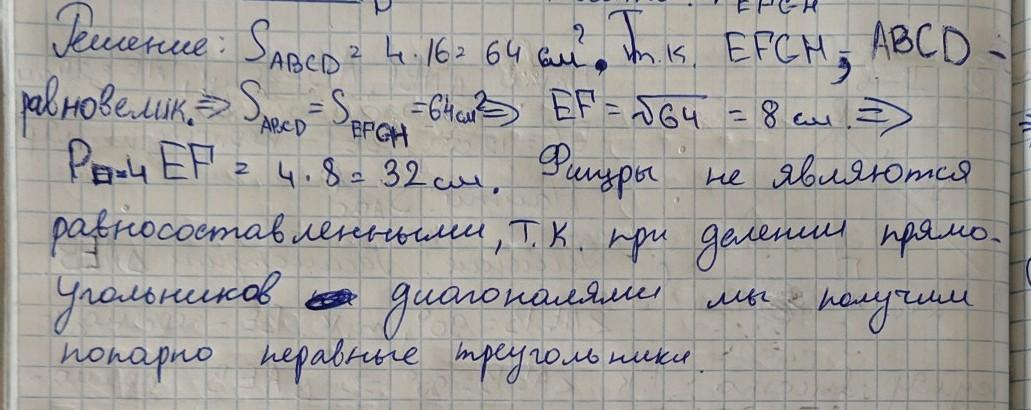 EFGH
Решение: S ABCD = 4·16 = 64 см². Т.к. EFGH; ABCD -
равновелик. => S ABCD = S EFGH = 64 см² => EF = √64 = 8 см. =>
P□ = 4 EF = 4·8 = 32 см. Фигуры не являются
равносоставленными, т.к. при делении прямо-
угольников диагоналями мы получим
попарно неравные треугольники.